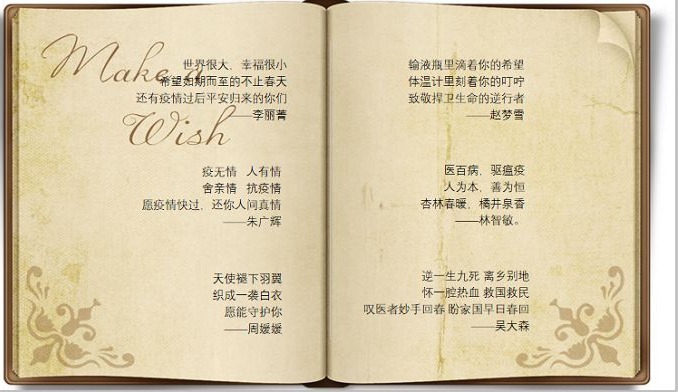 Make a
Wish
世界很大，幸福很小
希望如期而至的不止春天
还有疫情过后平安归来的你们
——李丽菁
疫无情 人有情
舍亲情 抗疫情
愿疫情快过，还你人间真情
——朱广辉
天使褪下羽翼
织成一袭白衣
愿能守护你
——周媛媛
输液瓶里滴着你的希望
体温计里刻着你的叮咛
致敬捍卫生命的逆行者
——赵梦雪
医百病，驱瘟疫
人为本，善为恒
杏林春暖，橘井泉香
——林智敏。
逆一生九死 离乡别地
怀一腔热血 救国救民
叹医者妙手回春 盼家国早日春回
——吴大森